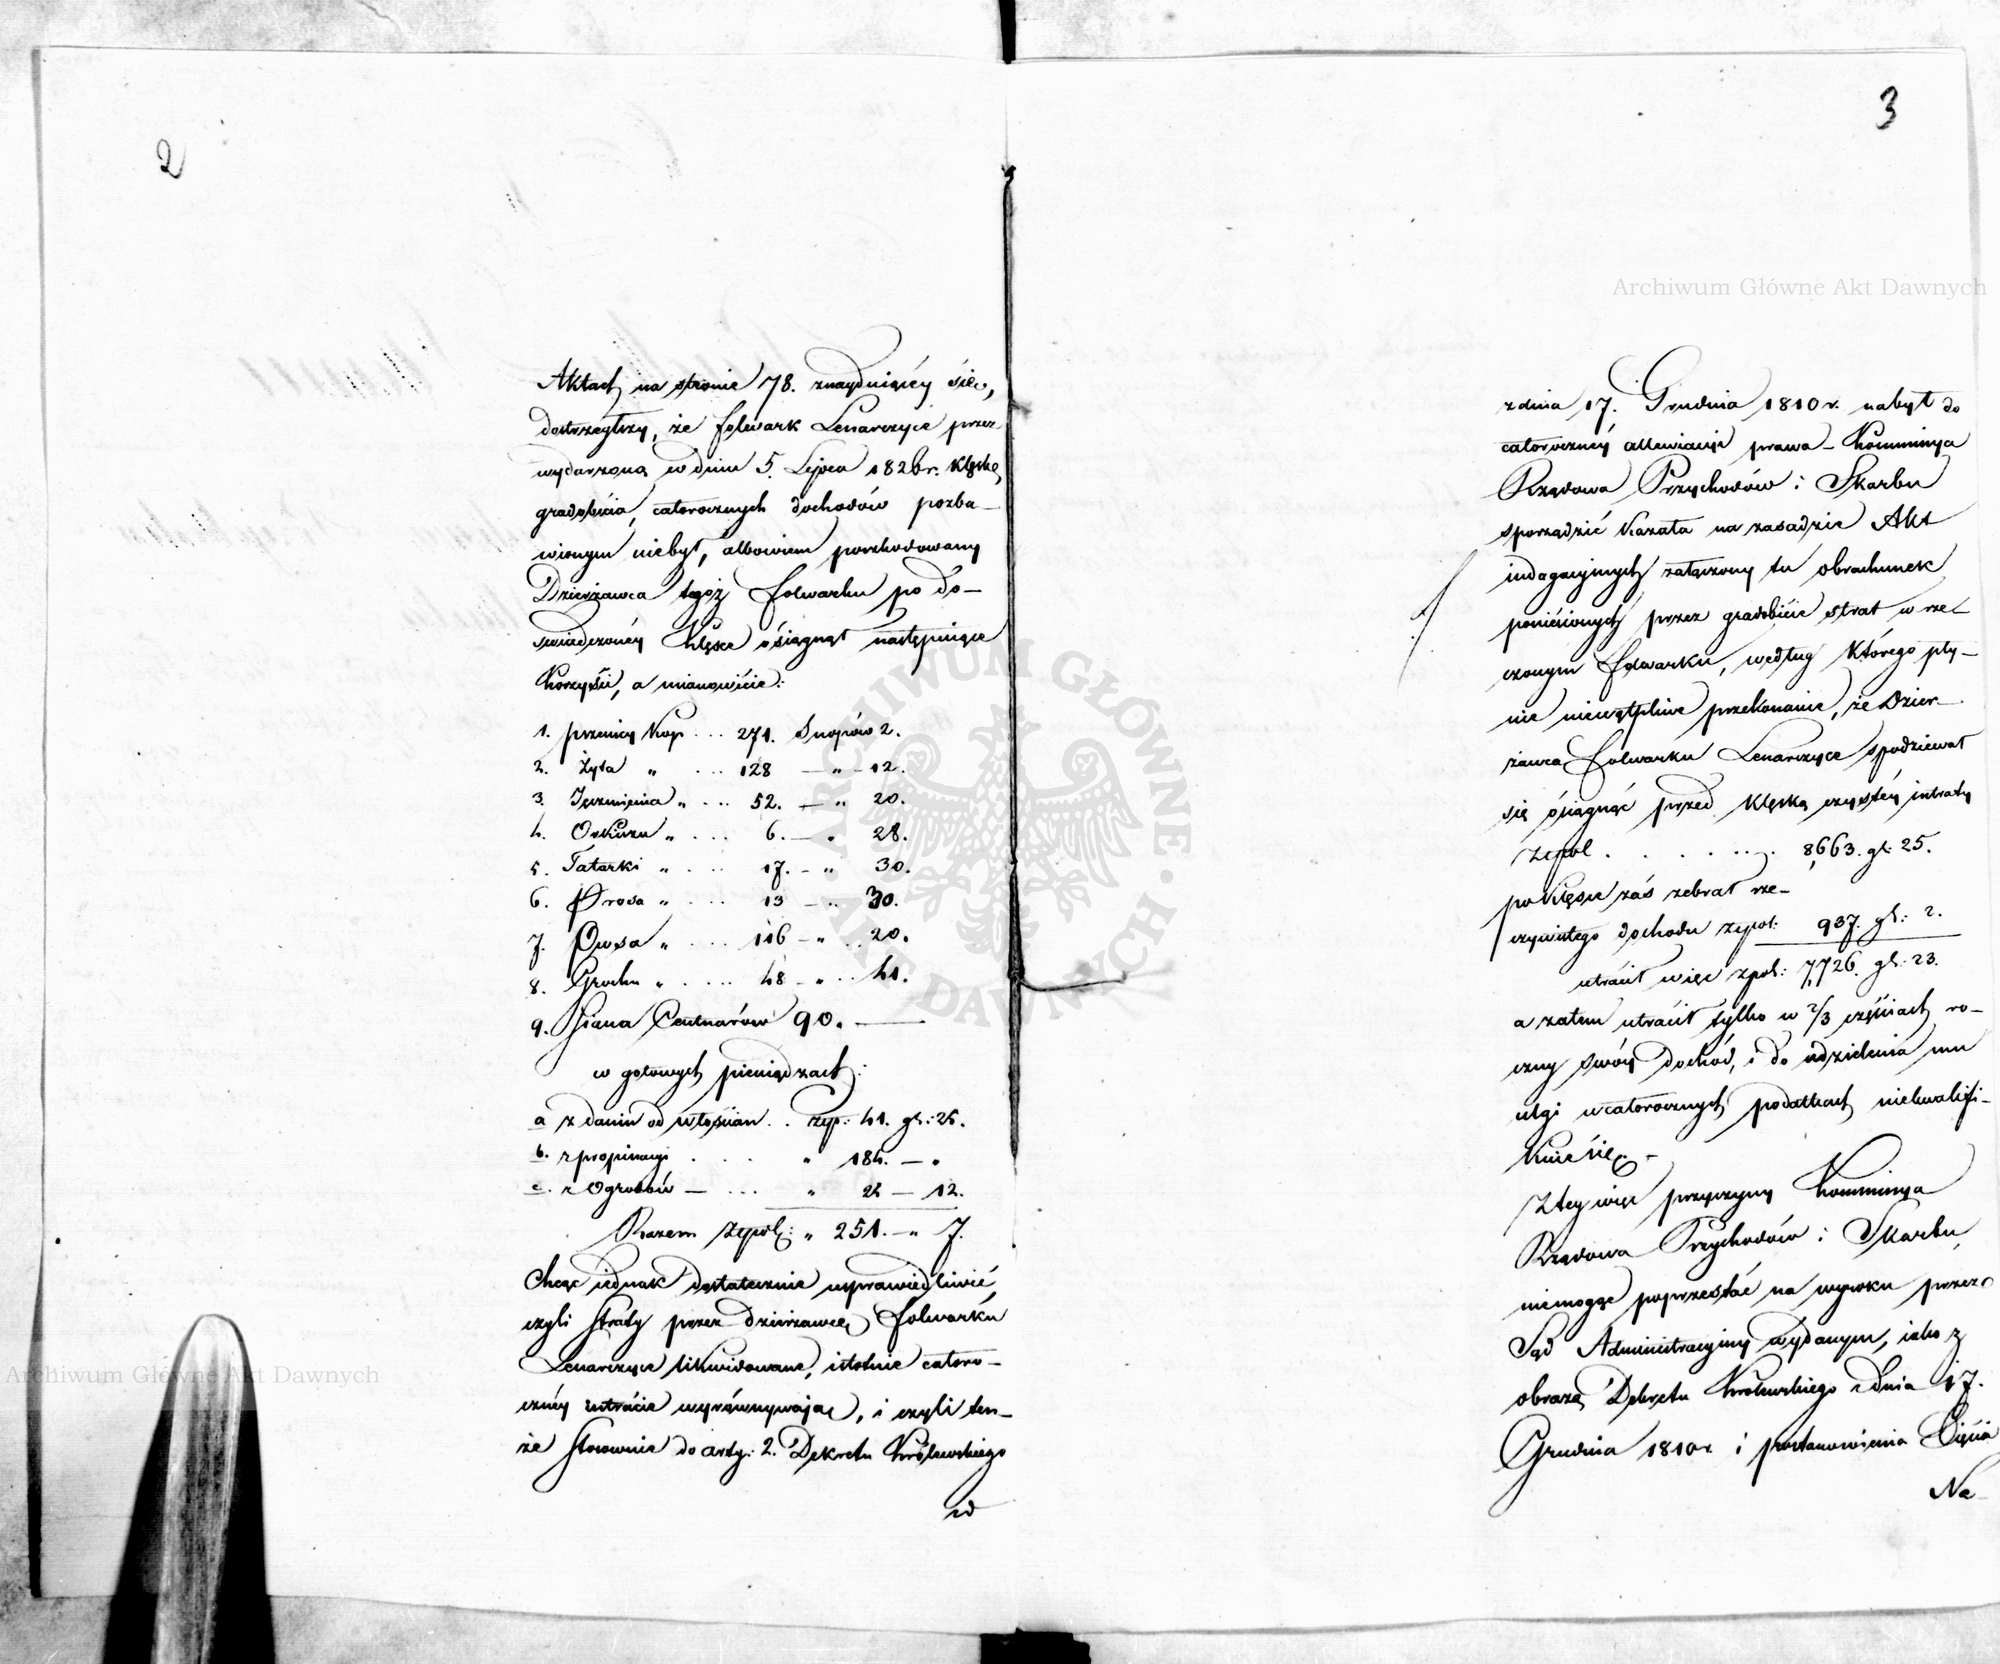 2
Aktach na stronie 78. znayduiącéy się,
dostrzegłszy, że folwark Lenarczyce przez
wydarzoną w dniu 5. Lipca 1826 r. klęskę
gradobicia, całorocznych dochodów pozba-
wionym niebył, albowiem poszkodowany
Dzierżawca tegoż folwarku po do-
świadczonéy klęsce osiągnął następuiące
korzyści, a mianowicie:
1. pszenicy kop ... 271. Snopów 2.
2. Żyta „ ... 128 — „ — 12.
3. Jęczmienia „ ... 52. — „ 20.
4. Orkiszu „ ... 6. — „ 28.
5. Tatarki „ ... 17. — „ 30.
6. Prosa „ ... 13 — „ 30.
7. Owsa „ ... 116 — „ .. 20.
8. Grochu „ ... 48 — „ .. 41.
9. Siana Centnarów 90. —
w gotowych pieniądzach:
a z danin od włościan .. zyp: 41. gr: 25.
b. z propinacyi . . . „ 184. — „
c. z Ogrodów — ... „ 25 — 12.
Razem Złpol: „ 251. — „ 7.
Chcąc iednak dostatecznie usprawiedliwić,
czyli straty przez dzierżawcę folwarku
Lenarczyce likwidowane, istotnie całoro-
cznéy intracie wyrównywaiąc, i czyli ten-
że stosownie do arty: 2. Dekretu Królewskiego
w
3
z dnia 17. Grudnia 1810 r. nabył do
całorocznéy allewiacyi prawa — Kommissya
Rządowa Przychodów i Skarbu
sporządzić kazała na zasadzie Akt
indagacyinych załączony tu obrachunek
poniesionych przez gradobicie strat w rze-
czonym folwarku, według którego pły-
nie niewątpliwe przekonanie, że Dzier-
żawca folwarku Lenarczyce spodziewał
się osiągnąć przed klęską czystéy intraty
Złpol . . . . . . . 8,663. gr: 25.
po klęsce zaś zebrał rze-
czywistego dochodu złpol: 937. gr: 2.
utracił więc złpol: 7,726. gr: 23.
a zatem utracił tylko w 2/3 częściach ro-
czny swóy dochód, i do udzielenia mu
ulgi w całorocznych podatkach niekwalifi-
kuie się. —
Z tey więc przyczyny Kommissya
Rządowa Przychodów i Skarbu,
niemogąc poprzestać na wyroku przez
Sąd Administracyiny wydanym, iako z
obrazą Dekretu Królewskiego z dnia 17.
Grudnia 1810 r. i postanowienia Xięcia
Na-
Archiwum Główne Akt Dawnych
Archiwum Główne Akt Dawnych
ARCHIWUM GŁÓWNE
AKT DAWNYCH